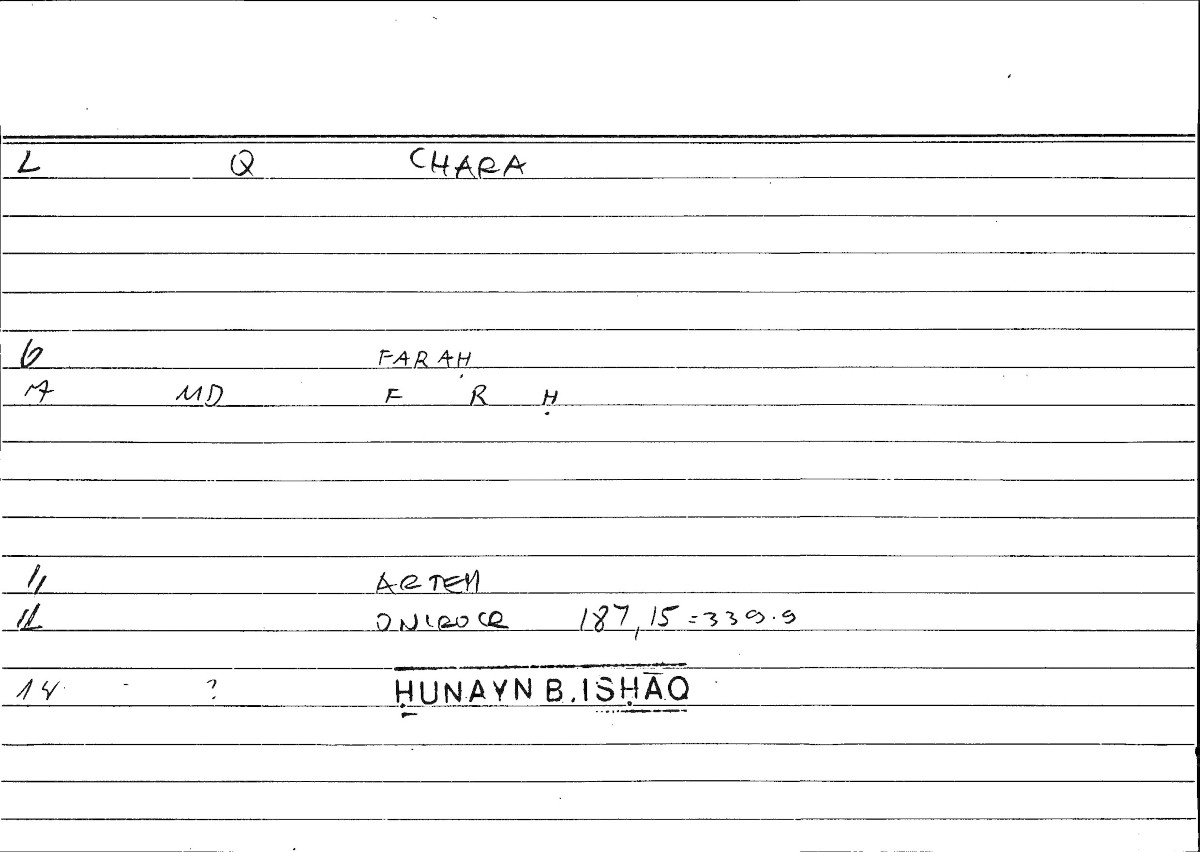 L Q CHARA
6 FARAḤ
7 MD F R Ḥ
11 ARTEM
12 ONIROCR 187,15=339.9
14 - ? ḤUNAYN B. ISḤĀQ